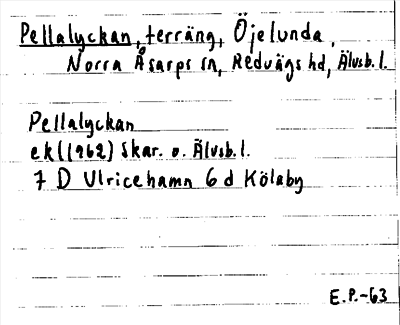 Pellalyckan, terräng, Öjelunda,
Norra Åsarps sn, Redvägs hd, Älvsb. l.
Pellalyckan
ek (1962) Skar. o. Älvsb. l.
7 D Ulricehamn 6 d Kölaby
E.P.-63